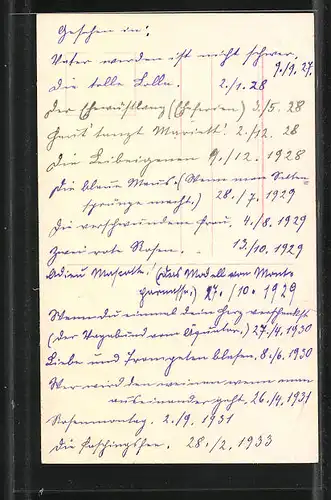 Gesehen in:
Vater werden ist nicht schwer. 9./9. 27.
Die tolle Lolle. 2./1. 28
Der Ehewüstling (Eheferien) 3/5. 28
Heut' tanzt Mariett! 2./12. 28
Die Leibeigenen 9./12. 1928
Die blaue Maus. (Wenn man Seiten-
sprünge macht.) 28./7. 1929
Die verschwundene Frau. 4./8. 1929
Zwei rote Rosen. 13./10. 1929
Adieu Mascotte. (das Modell von Mont-
parnasse.) 27./10. 1929
Wenn du einmal dein Herz verschenkst
(der Vagabund vom Äquator.) 27./4. 1930
Liebe und Trompeten blasen. 8./6. 1930
Wer wird denn weinen wenn man
auseinandergeht. 26./4. 1931
Rosenmontag. 2./9. 1931
Die Faschingsfee. 28./2. 1933